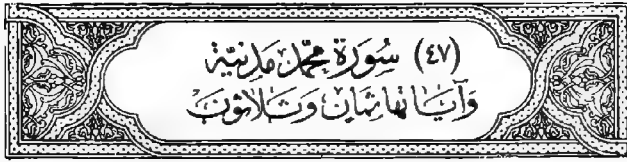 (٤٧) سُورَة مُحَمَّد مَدَنِيَّة
وَآيَانهَا ثمَان وَثَلَاثُونَ